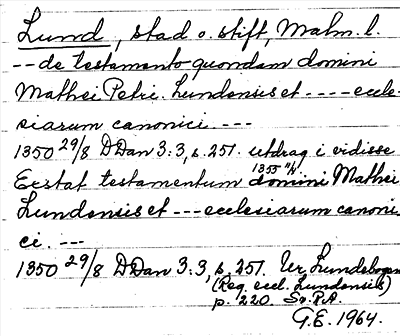 Lund, stad o. stift, Malm. l.
-- de testamento quondam domini
Mathei Petri. Lundensis et ---- eccle-
siarum canonici. ---
1350 29/8 DDan 3:3, s. 251. utdrag i vidisse
1355 11/4
Exstat testamentum domini Mathei
Lundensis et --- ecclesiarum canoni-
ci. ---
1350 29/8 DDan 3:3, s. 251. Ur Lundabogen
(Reg. eccl. Lundensis)
p. 220. Sv. R.A.
G.E. 1964.